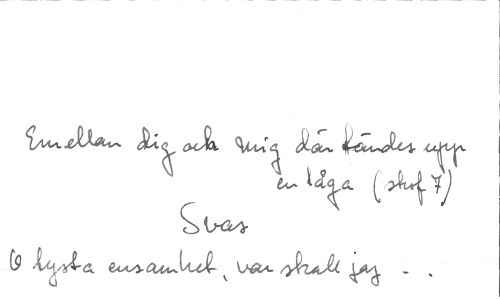 Emellan dig och mig där tändes upp
en låga (strof 7)
Svar
O tysta ensamhet, var skall jag . . .